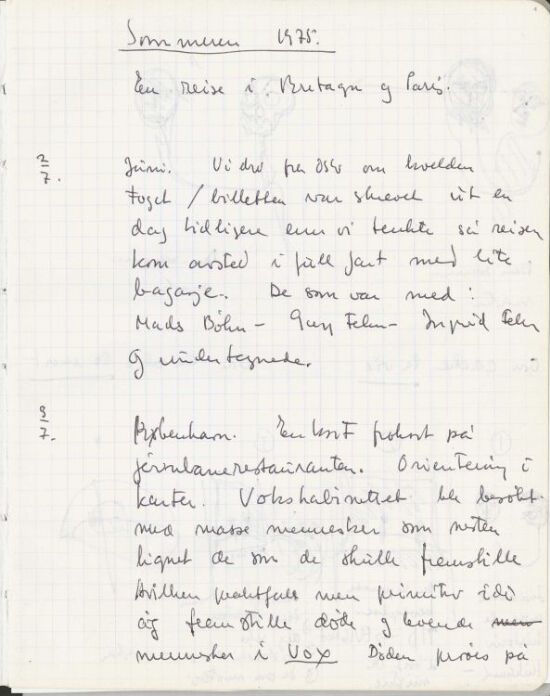 Sommeren 1975.
En reise i Bretagn og Paris.
2/7. Juni. Vi dro fra Oslo om kvelden
Toget / billetten var skrevet ut en
dag tidligere enn vi tenkte så reisen
kom avsted i full fart med lite
bagasje. De som var med:
Mads Böhn - Guy Fehn - Ingrid Fehn
og undertegnede.
3/7. København. En kort frokost på
jernbanerestauranten. Orientering i
karter. Vokskabinettet ble besøkt
med masse mennesker som nesten
lignet de som de skulle fremstille
Hvilken prektfull men primitiv idé
åg fremstille døde og levende
mennesker i VOX Døden prøves på